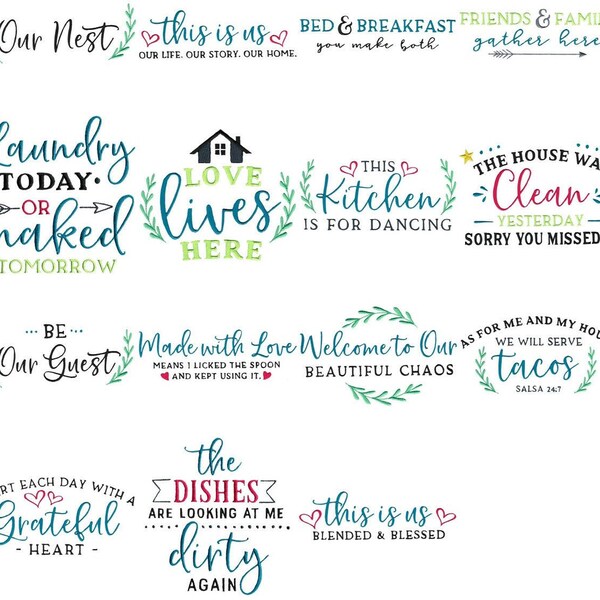 Our Nest
this is us
OUR LIFE. OUR STORY. OUR HOME.
BED & BREAKFAST
you make both
FRIENDS & FAMI
gather here
Laundry
TODAY
OR
naked
TOMORROW
LOVE
lives
HERE
THIS
Kitchen
IS FOR DANCING
THE HOUSE WA
Clean
YESTERDAY
SORRY YOU MISSED
BE
Our Guest
Made with Love
MEANS I LICKED THE SPOON
AND KEPT USING IT.
Welcome to Our
BEAUTIFUL CHAOS
AS FOR ME AND MY HOU
WE WILL SERVE
tacos
SALSA 24:7
RT EACH DAY WITH A
Grateful
- HEART -
the
DISHES
ARE LOOKING AT ME
dirty
AGAIN
this is us
BLENDED & BLESSED